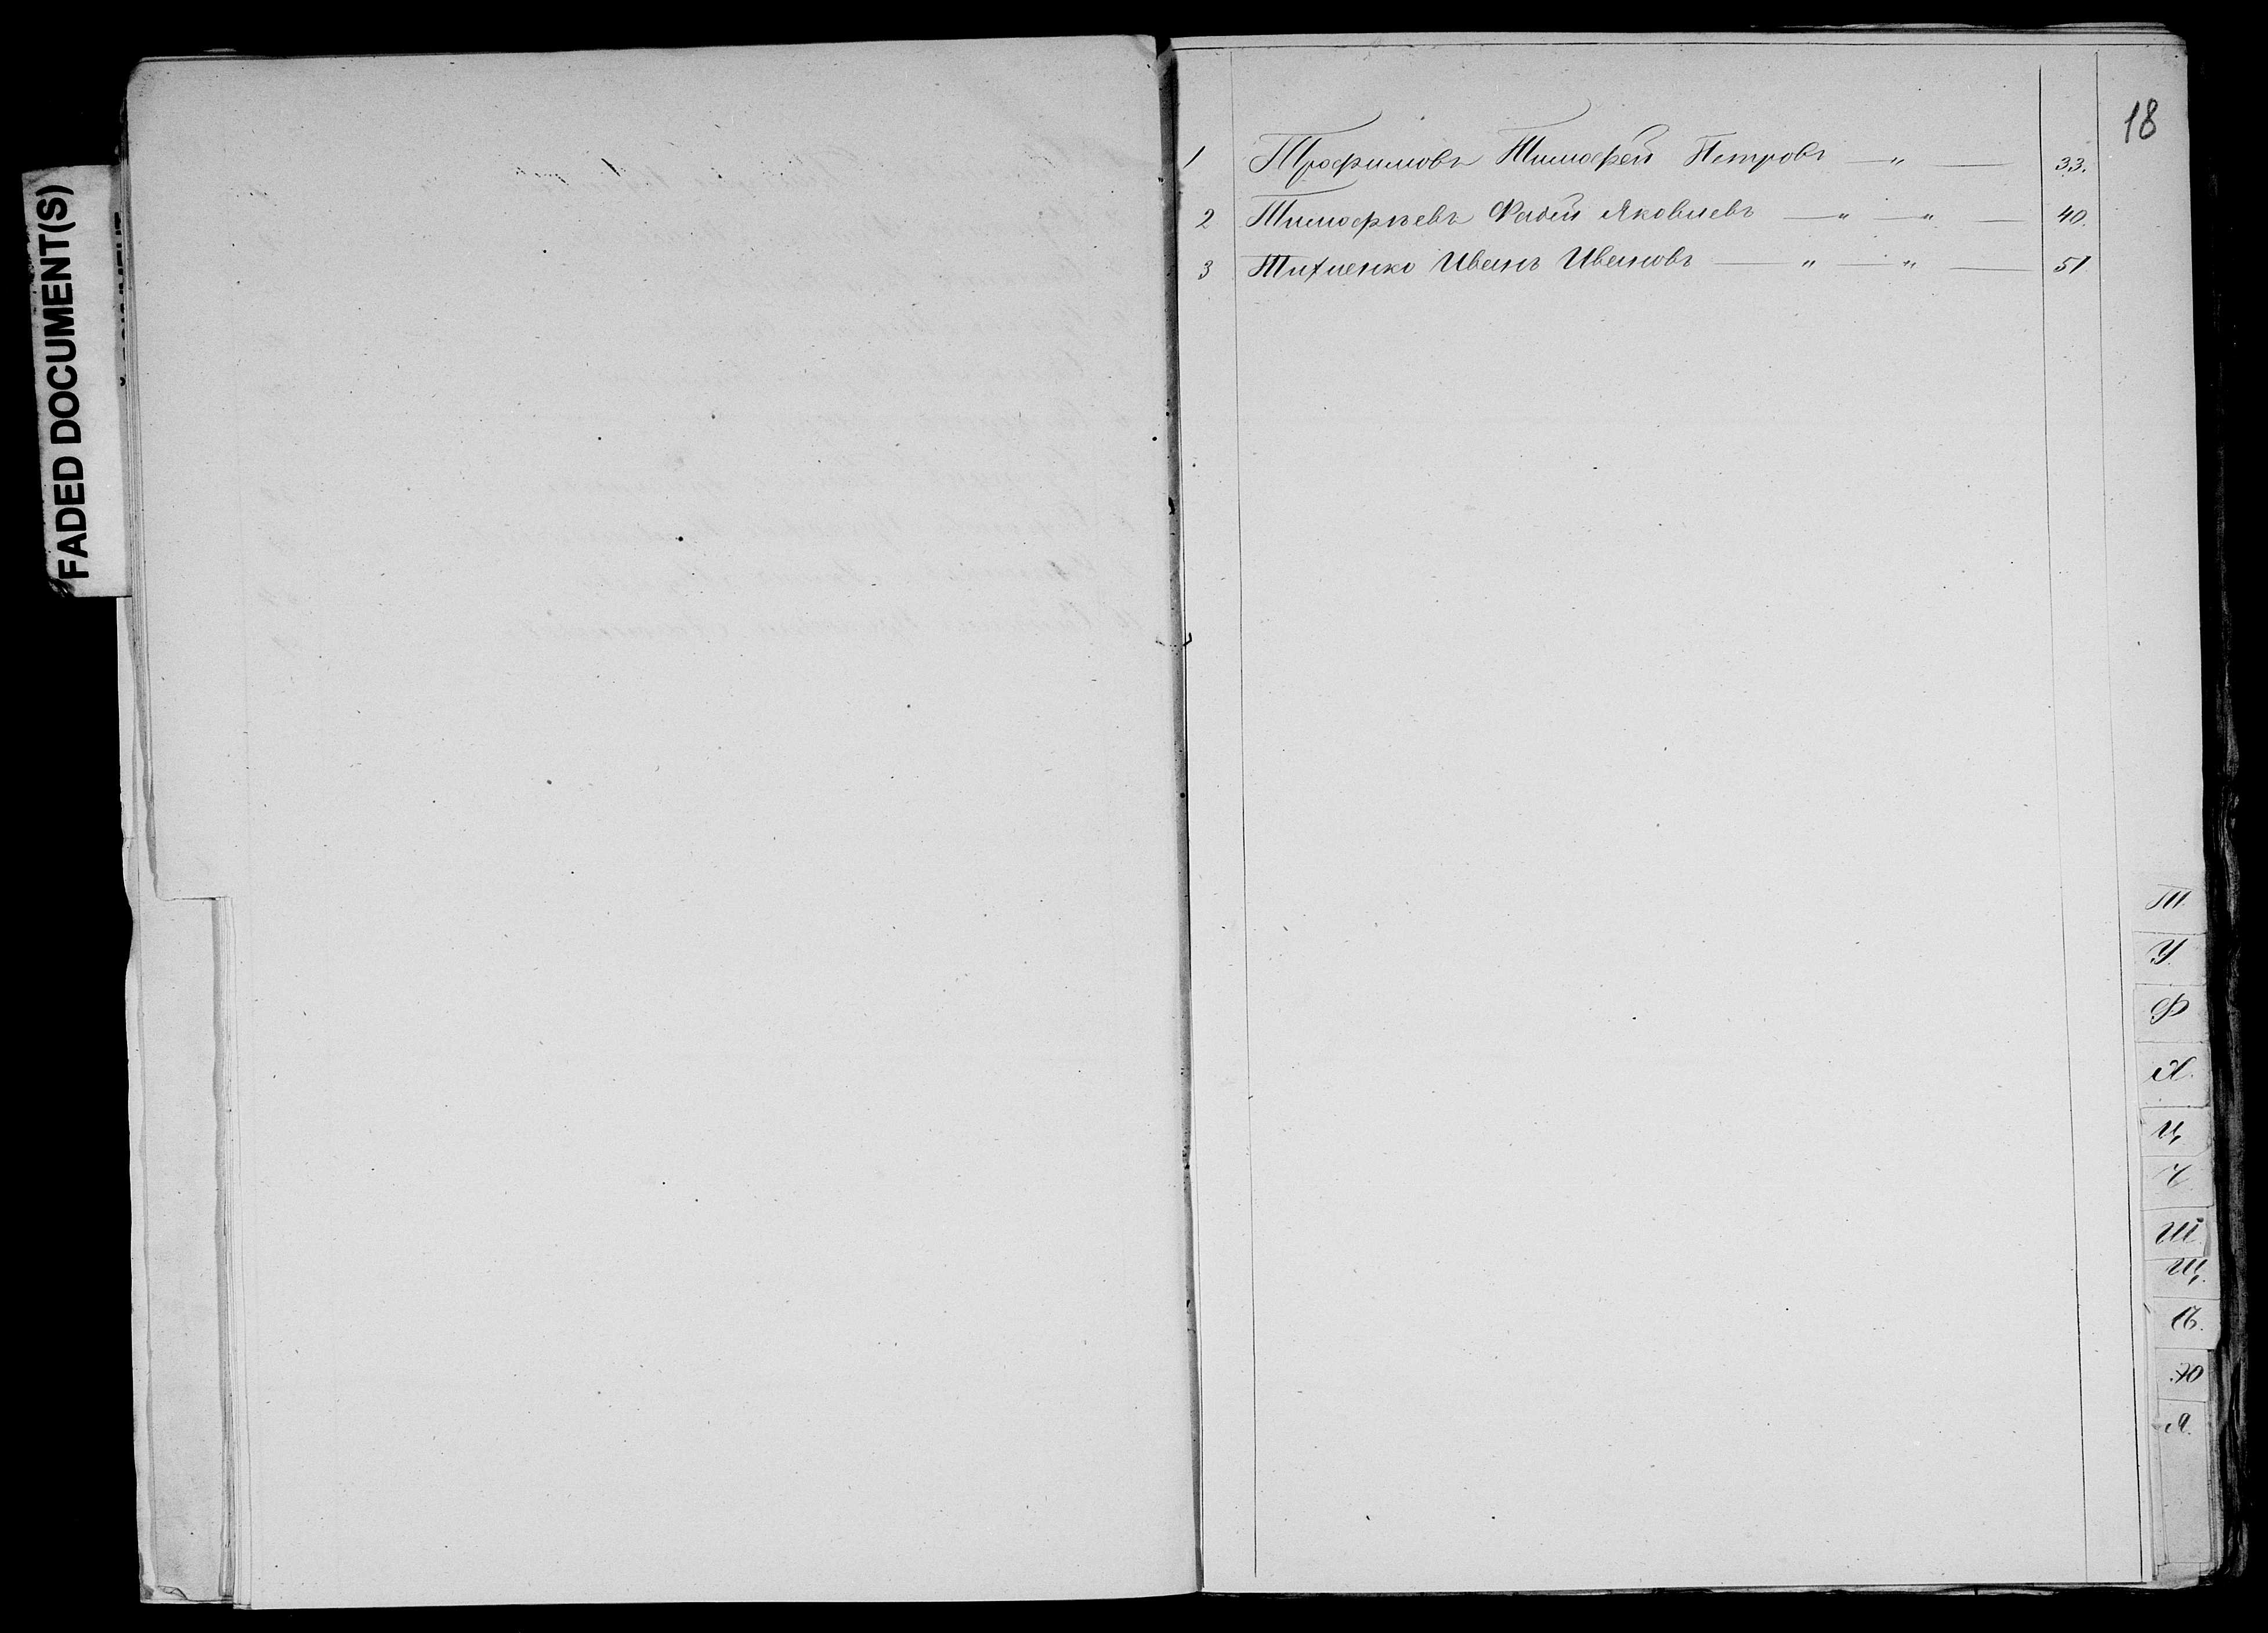 FADED DOCUMENT(S)
18
1 Трофимовъ Тимофей Петровъ — „ — 33.
2 Тимофѣевъ Фадей Яковлевъ — „ — „ — 40.
3 Тихненко Иванъ Ивановъ — „ — „ — 51
Т
У
Ф
Х
Ц
Ч
Ш
Щ
Ѣ
Ю
Я